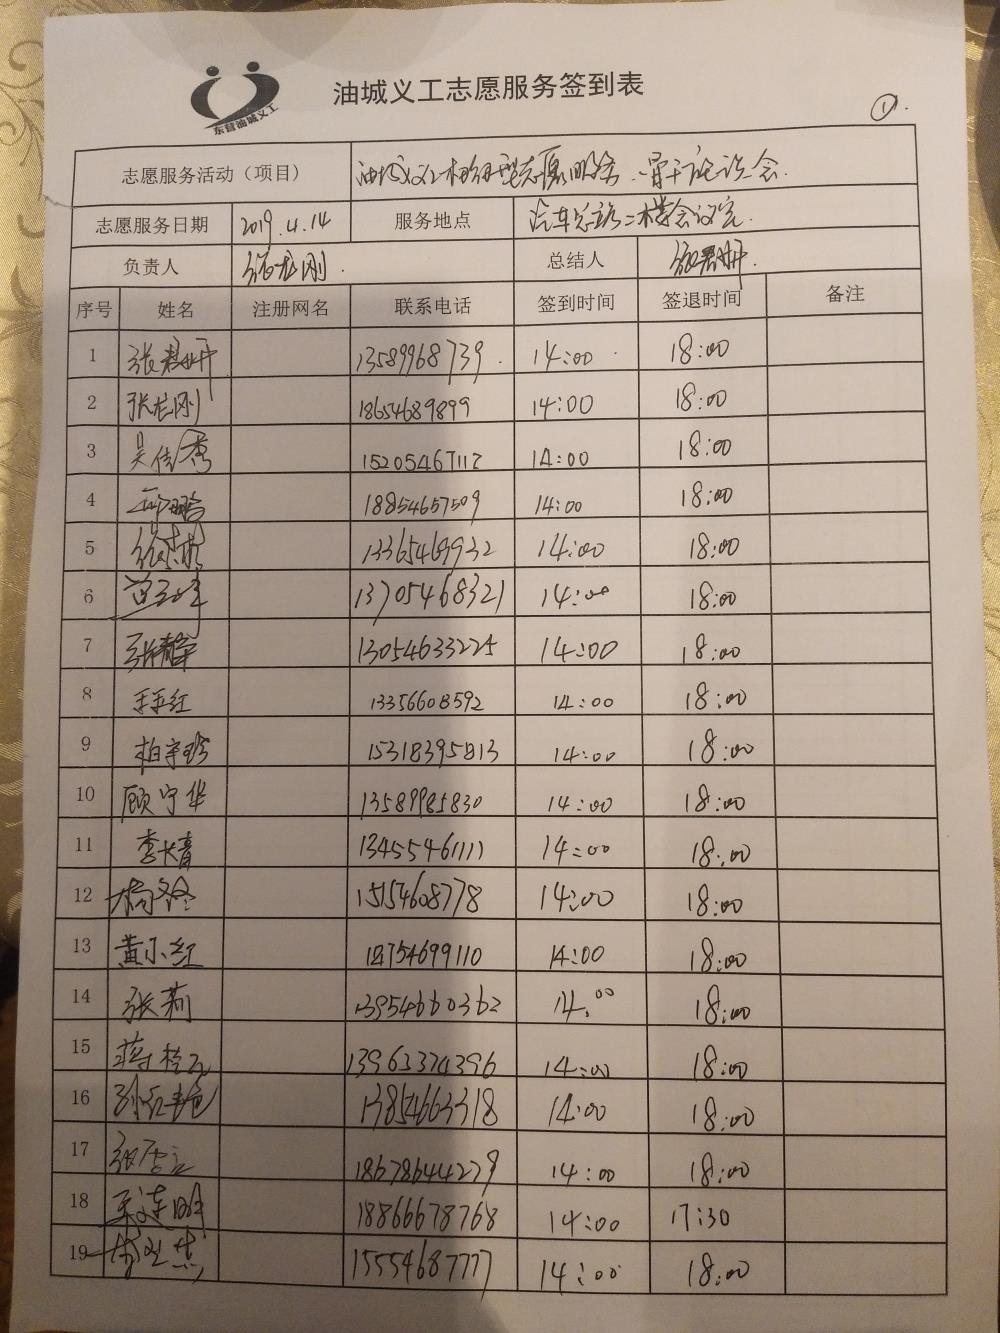 东营油城义工
油城义工志愿服务签到表
①.
志愿服务活动（项目） 油城义工 志愿服务
志愿服务日期 2019.4.14 服务地点 汽车总站二楼会议室
负责人 张龙刚 总结人
序号 姓名 注册网名 联系电话 签到时间 签退时间 备注
1 13589968739 14:00 18:00
2 张龙刚 18654689899 14:00 18:00
3 吴佳秀 15205467112 14:00 18:00
4 18854657509 14:00 18:00
5 13365469932 14:00 18:00
6 13705468321 14:00 18:00
7 13054633225 14:00 18:00
8 13356608592 14:00 18:00
9 15318395813 14:00 18:00
10 顾宁华 13589985830 14:00 18:00
11 李长青 13455461111 14:00 18:00
12 15154608778 14:00 18:00
13 黄小红 14:00 18:00
14 张莉 13954660362 14:00 18:00
15 13963374396 14:00 18:00
16 13854663318 14:00 18:00
17 18678644279 14:00 18:00
18 18866678768 14:00 17:30
19 15554687777 14:00 18:00